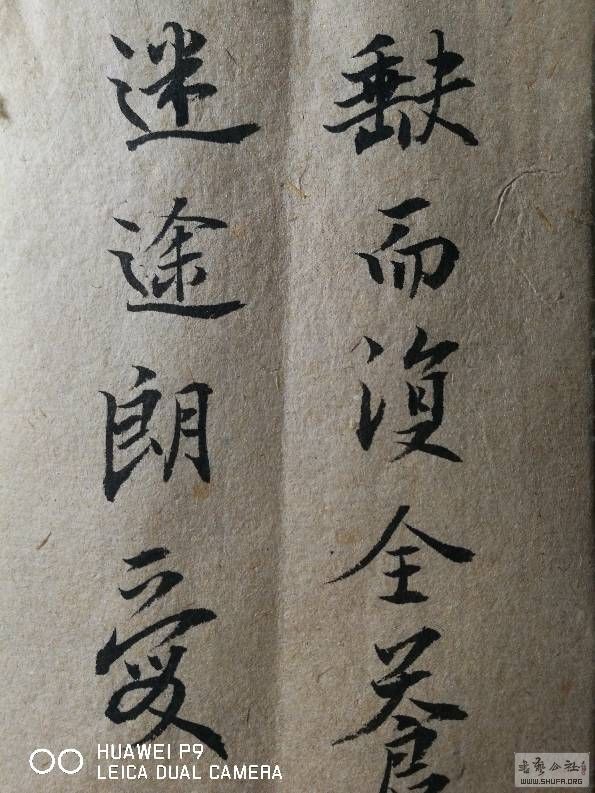 缺而復全蒼
迷途朗愛
HUAWEI P9
LEICA DUAL CAMERA
WWW.SHUFA.ORG